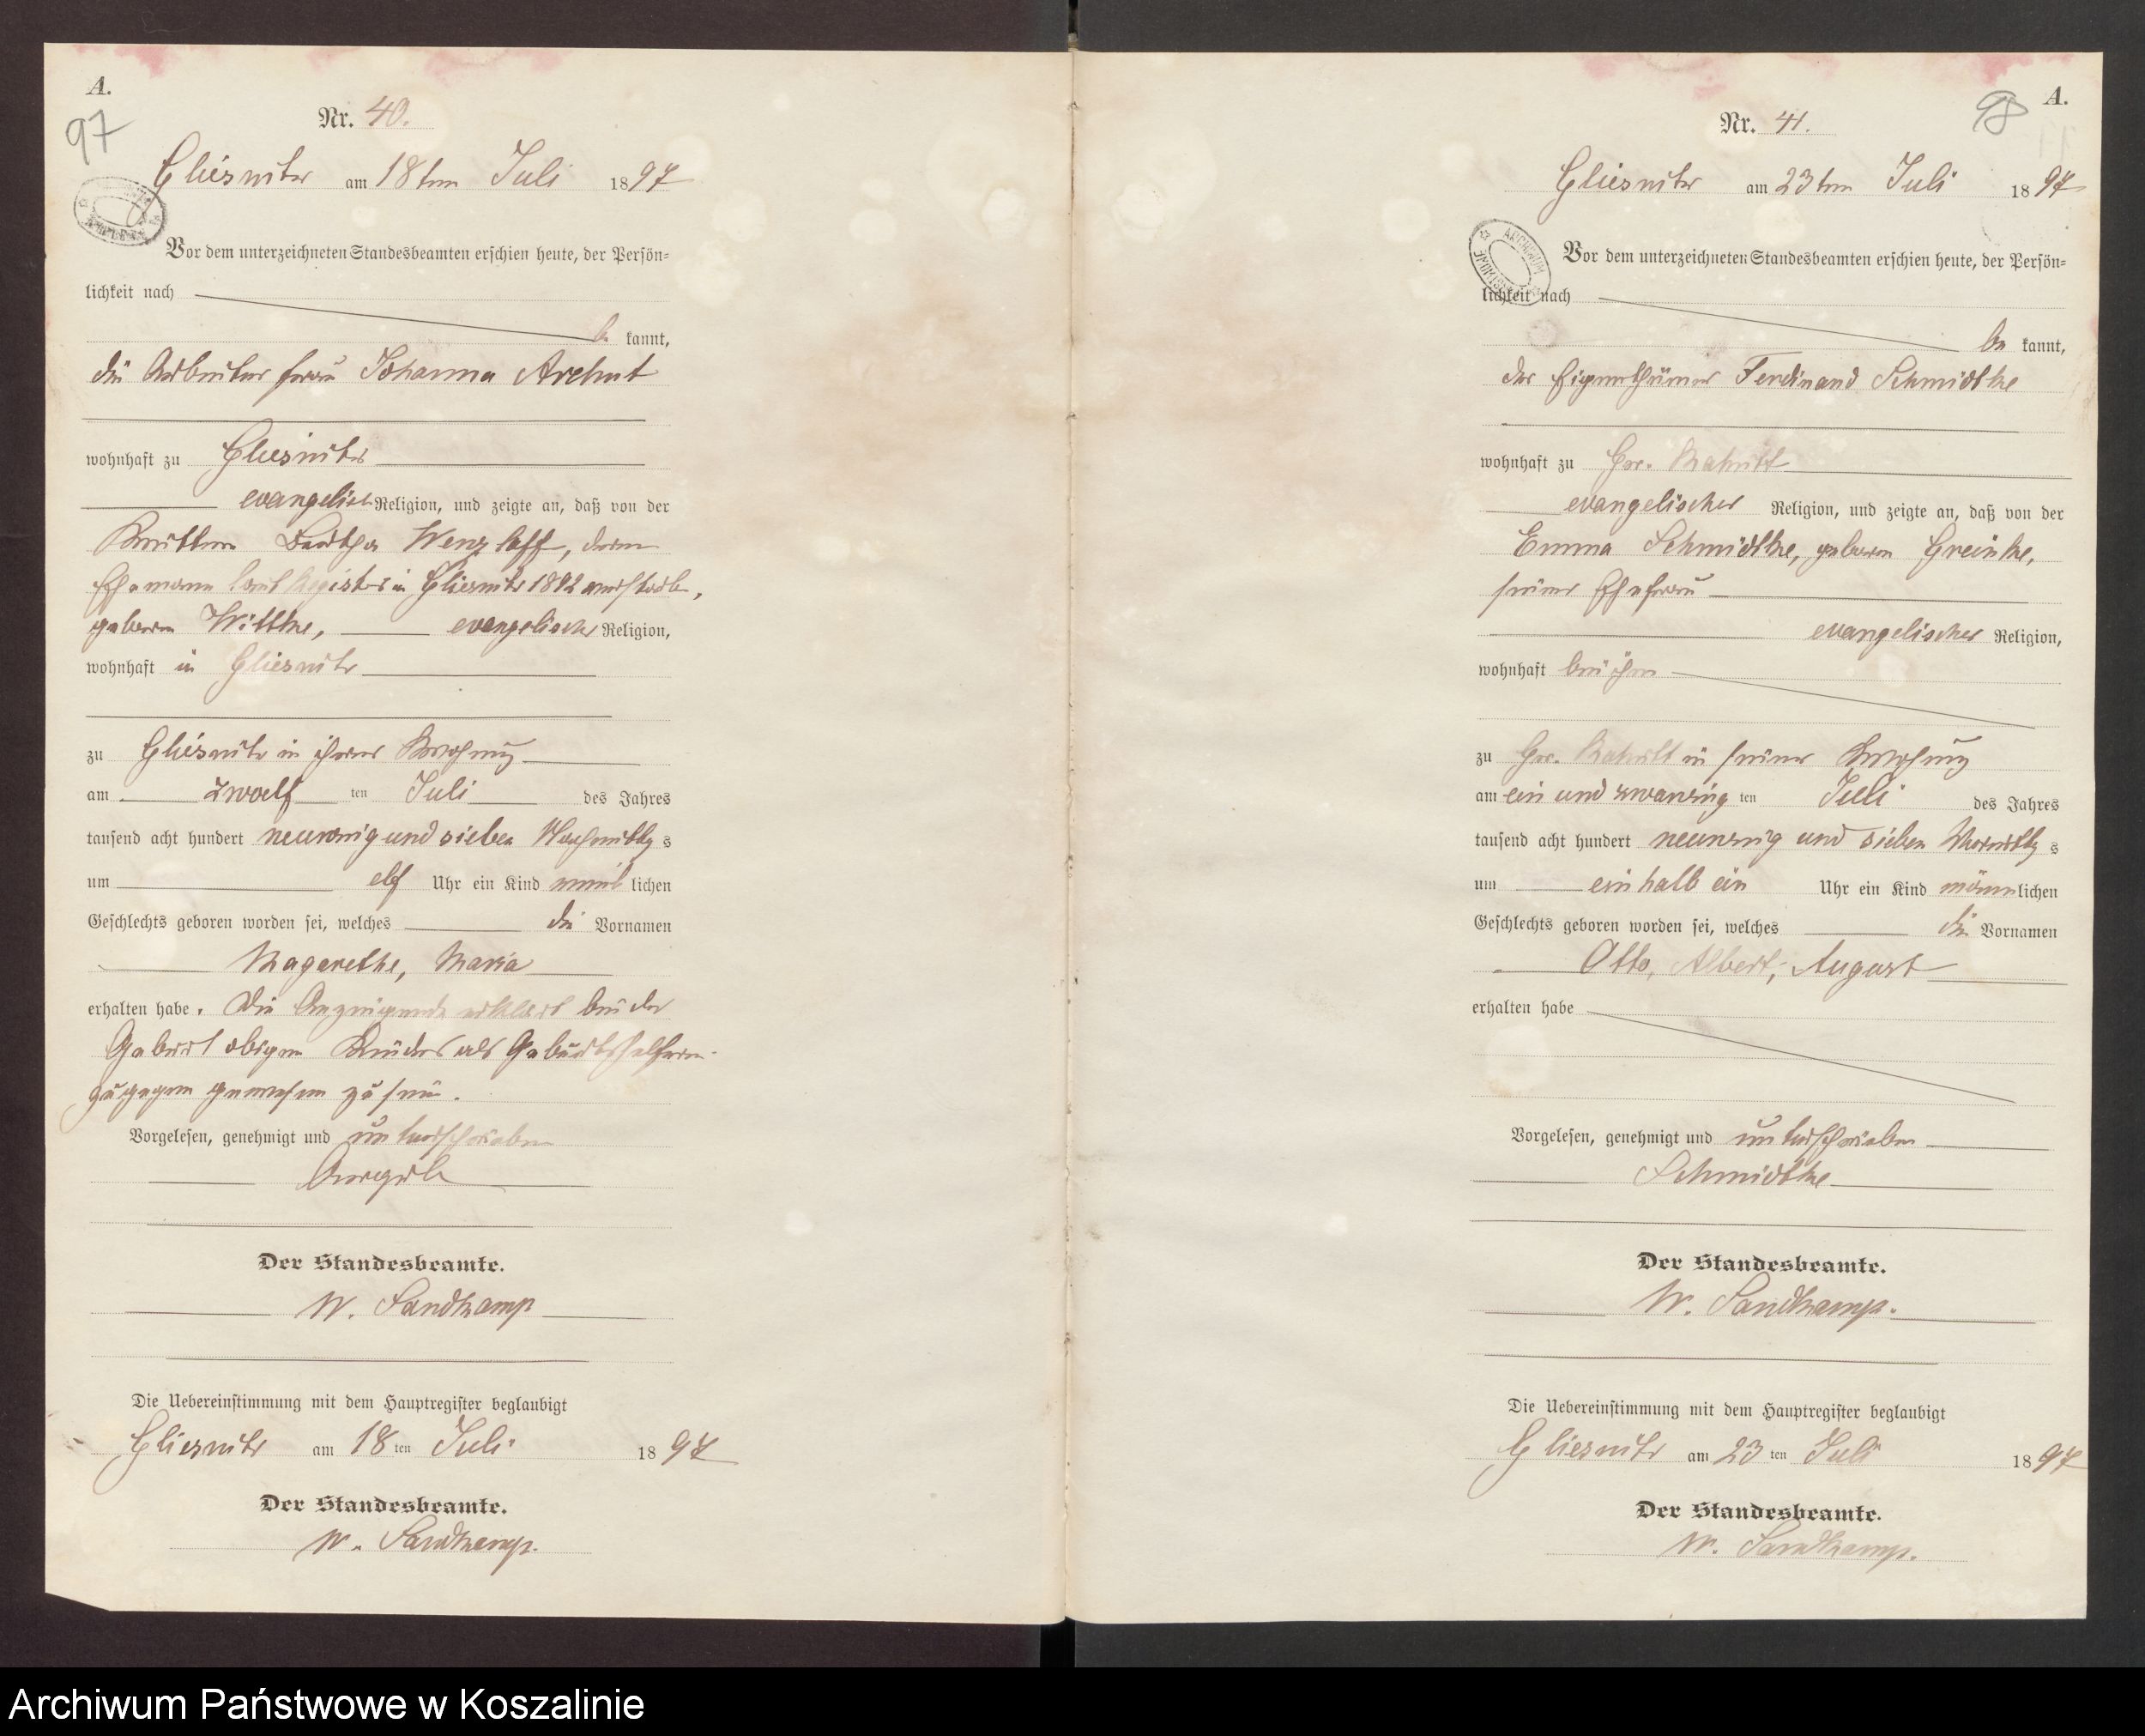 A.
97
Nr. 40.
Gliesnitz am 18ten Juli 1897
Vor dem unterzeichneten Standesbeamten erschien heute, der Persön-
lichkeit nach
be kannt,
die Arbeiter frau Johanna Archut
wohnhaft zu Gliesnitz
evangelisch Religion, und zeigte an, daß von der
Wittwe Bertha Wenzlaff, deren
Ehemann laut Register in Gliesnitz 1892 verstorb.,
geboren Witthe, evangelischer Religion,
wohnhaft in Gliesnitz
zu Gliesnitz in ihrer Wohnung
am zwoelf ten Juli des Jahres
tausend acht hundert neunzig und sieben Nachmittag s
um elf Uhr ein Kind weib lichen
Geschlechts geboren worden sei, welches die Vornamen
Magarethe, Maria
erhalten habe. Die Anzeigende erklärt bei der
Geburt obigen Kindes als Geburtshelferin
zugegen gewesen zu sein.
Vorgelesen, genehmigt und unterschrieben
Der Standesbeamte.
W. Sandkamp
Die Uebereinstimmung mit dem Hauptregister beglaubigt
Gliesnitz am 18 ten Juli 1897
Der Standesbeamte.
W. Sandkamp.
A.
98
Nr. 41.
Gliesnitz am 23ten Juli 1897
ARCHIWUM
Vor dem unterzeichneten Standesbeamten erschien heute, der Persön-
lichkeit nach
be kannt,
der Eigenthümer Ferdinand Schmidtke
wohnhaft zu Gr.
evangelischer Religion, und zeigte an, daß von der
Emma Schmidtke, geboren Greinke,
seiner Ehefrau
evangelischer Religion,
wohnhaft bei ihm
zu Gr. in seiner Wohnung
am ein und zwanzig ten Juli des Jahres
tausend acht hundert neunzig und sieben Vormittag s
um ein halb ein Uhr ein Kind männlichen
Geschlechts geboren worden sei, welches die Vornamen
Otto, Albert, August
erhalten habe
Vorgelesen, genehmigt und unterschrieben
Schmidtke
Der Standesbeamte.
W. Sandkamp.
Die Uebereinstimmung mit dem Hauptregister beglaubigt
Gliesnitz am 23 ten Juli 1897
Der Standesbeamte.
W. Sandkamp.
Archiwum Państwowe w Koszalinie